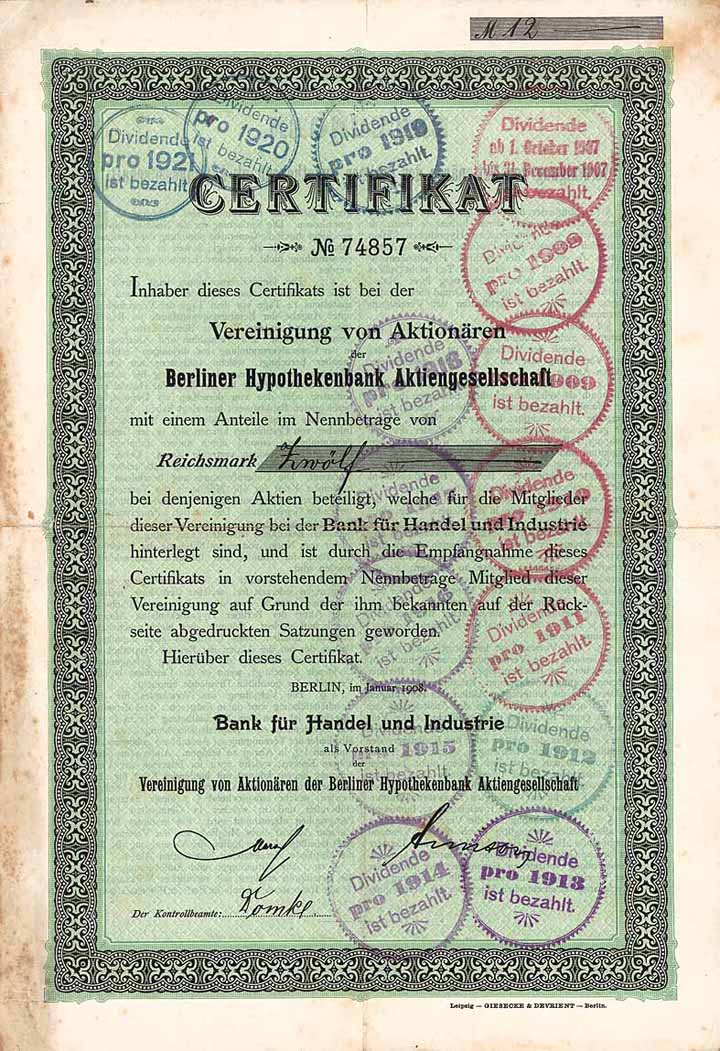 M 12
Dividende
pro 1921
ist bezahlt
Dividende
pro 1920
ist bezahlt
Dividende
pro 1919
ist bezahlt.
Dividende
ab 1. October 1907
bis 31. Dezember 1907
ist bezahlt.
CERTIFIKAT
No 74857
Dividende
pro 1908
ist bezahlt.
Inhaber dieses Certifikats ist bei der
Vereinigung von Aktionären
der
Berliner Hypothekenbank Aktiengesellschaft
Dividende
pro 1918
ist bezahlt
Dividende
1909
ist bezahlt.
mit einem Anteile im Nennbetrage von
Reichsmark Zwölf
bei denjenigen Aktien beteiligt, welche für die Mitglieder
dieser Vereinigung bei der Bank für Handel und Industrie
hinterlegt sind, und ist durch die Empfangnahme dieses
Certifikats in vorstehendem Nennbetrage Mitglied dieser
Vereinigung auf Grund der ihm bekannten auf der Rück-
seite abgedruckten Satzungen geworden.
Hierüber dieses Certifikat.
Dividende
ist bezahlt
Dividende
ist bezahlt
Dividende
ist bezahlt.
Dividende
pro 1911
ist bezahlt.
BERLIN, im Januar 1908.
Bank für Handel und Industrie
als Vorstand
der
Vereinigung von Aktionären der Berliner Hypothekenbank Aktiengesellschaft
Dividende
pro 1915
ist bezahlt.
Dividende
pro 1912
ist bezahlt.
Dividende
pro 1914
ist bezahlt.
Dividende
pro 1913
ist bezahlt.
Der Kontrollbeamte:
Leipzig — GIESECKE & DEVRIENT — Berlin.